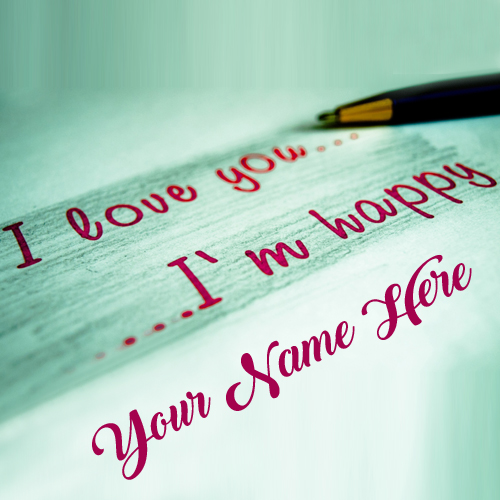 I love you...
.....I`m happy
Your Name Here